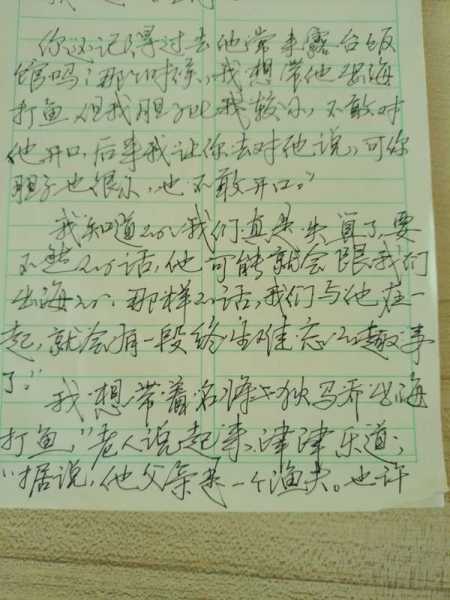 你还记得过去他常来露台饭
馆吗？那个时候，我想带他出海
打鱼，但我胆子比我较小，不敢对
他开口，后来我让你去对他说，可你
胆子也很小，也不敢开口。”
我知道的，我们真是失算了，要
不然的话，他可能就会跟我们
出海的。那样的话，我们与他在一
起，就会有一段终生难忘的趣事
了。”
我想带着名将迪马乔出海
打鱼，”老人说起来，津津乐道；
“据说，他父亲是一个渔夫。也许